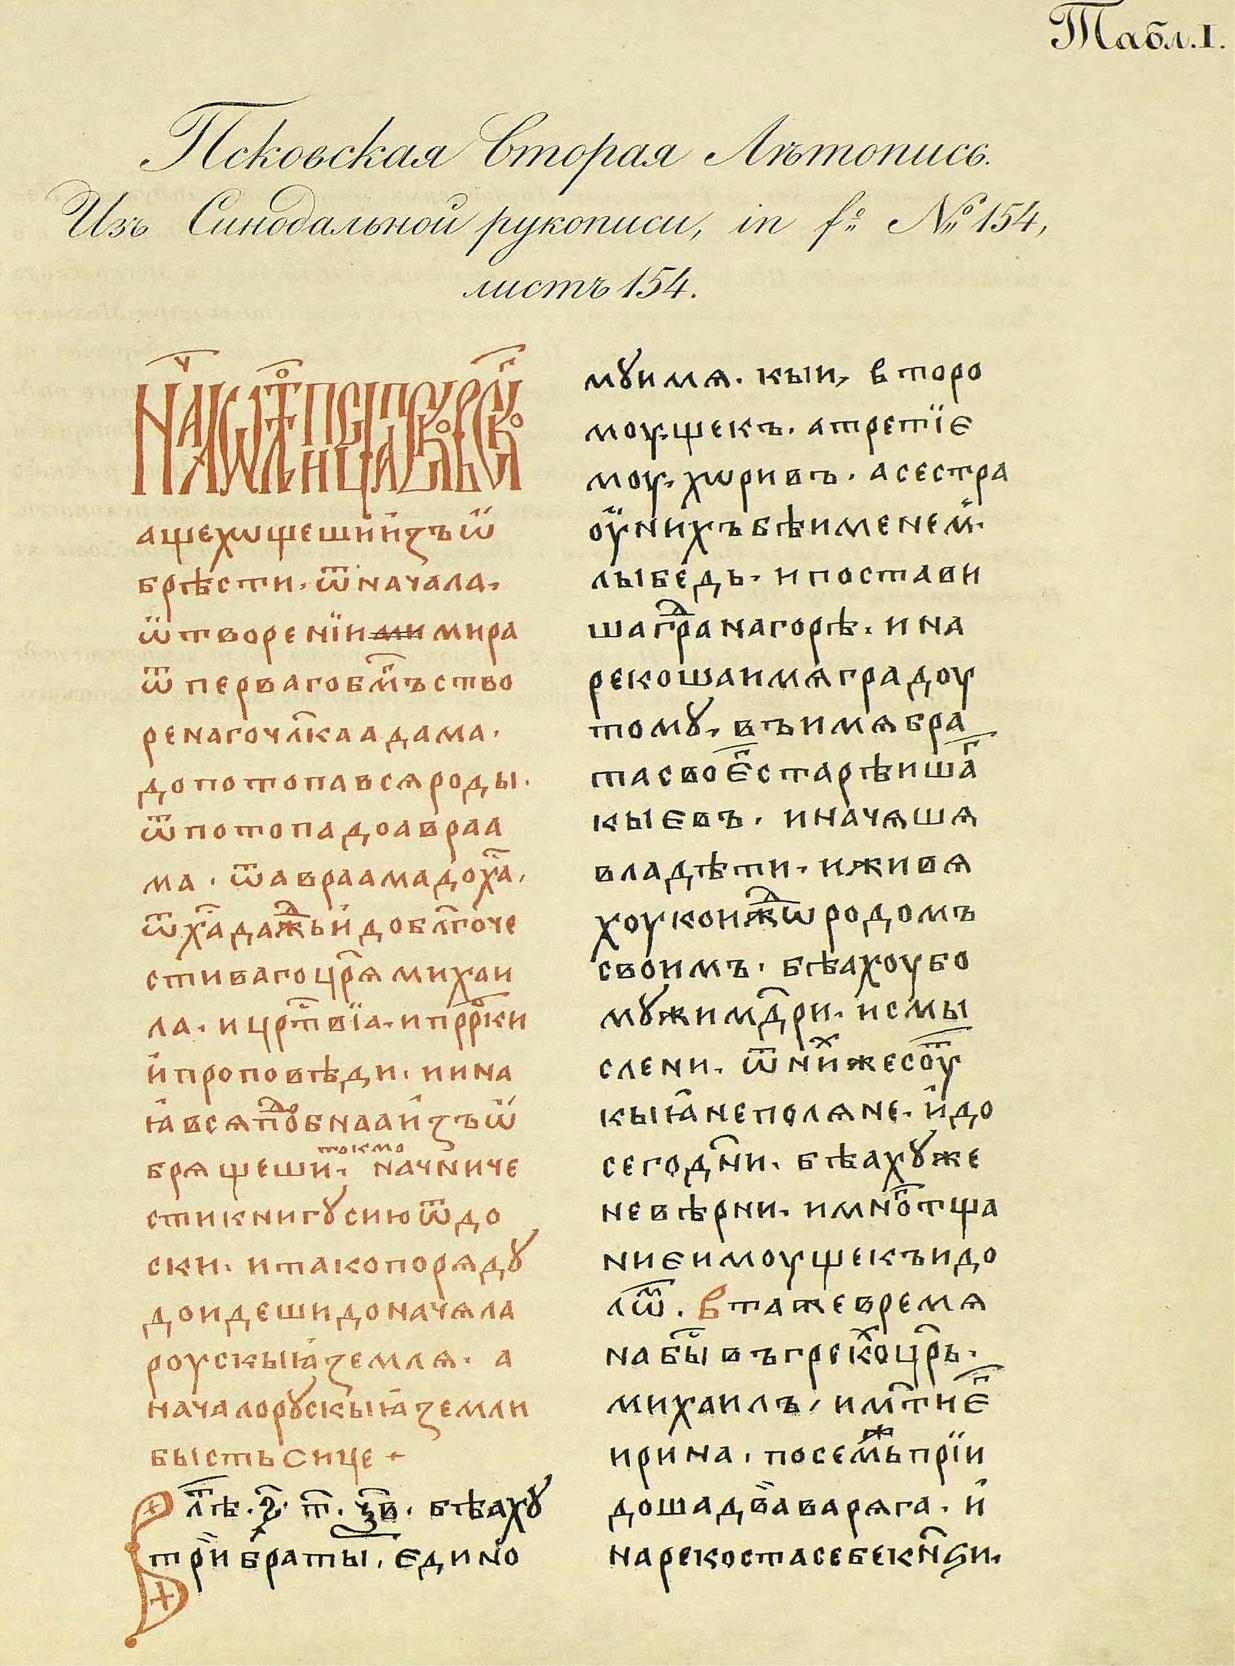 Табл. I.
Псковская Вторая Лѣтопись.
Изъ Синодальной рукописи, in fº Nº 154,
листъ 154.
ащехѡщешии҆ꙁъѡ҆
брѣсти. ѿначала.
ѡ҆творенїими мира
ѿ перваго бм҃ъство
ренагочл҃ка адама.
допотопавсѧроды.
ѿпотопадоавраа
ма. ѿавраамадох҃а.
ѿх҃адажⷣьи҆добл҃гоче
стиваго цр҃ѧ михаи
ла. и црⷭ҇твїа. и прⷪ҇рки
и҆проповѣди. иина
ꙗ҆всѧпⷣобнаа и҆ꙁъѡ҆
токмо
брѧщеши. начн҃иче
стикнигꙋсиюѿдо
ски. итакопорѧдꙋ
доидешидоначѧла
роускыꙗземлѧ. а
началорꙋскыꙗ҆земли
бысть сице +
В лѣⷮ. ҂ꙅ. т҃. ч҃в. бѣахꙋ
три браты, єдино
мꙋимѧ. кыи, второ
моу.щекъ. атретїє
моу. хѡривъ. асестра
оу҆нихъбѣименем.
лыбедь. ипостави
шагрⷣанагорѣ. ина
рекошаимѧградоу
томꙋ. въимѧбра
тасвоєⷢ҇старѣишаⷢ҇
кыєвъ. иначѧшѧ
владѣти. иживѧ
хоукоижⷣѡродомъ
своимъ. бѣахоубо
мꙋжимⷣри. исмы
слени. ѿниⷯжесоуⷮ
кыꙗ҆неполѧне. и҆до
сегодн҃и. бѣахꙋже
невѣрни. имноⷢ҇тща
ниєимоущекъидо
лѡⷨ. втажевремѧ
набⷭ҇ывъгрекⷯоцр҃ь.
михаилъ, имт҃иєⷢ҇
ирина. посемьⷤпрїи
дошадваварѧга. и҆
нарекостасебекнꙅ҃и.